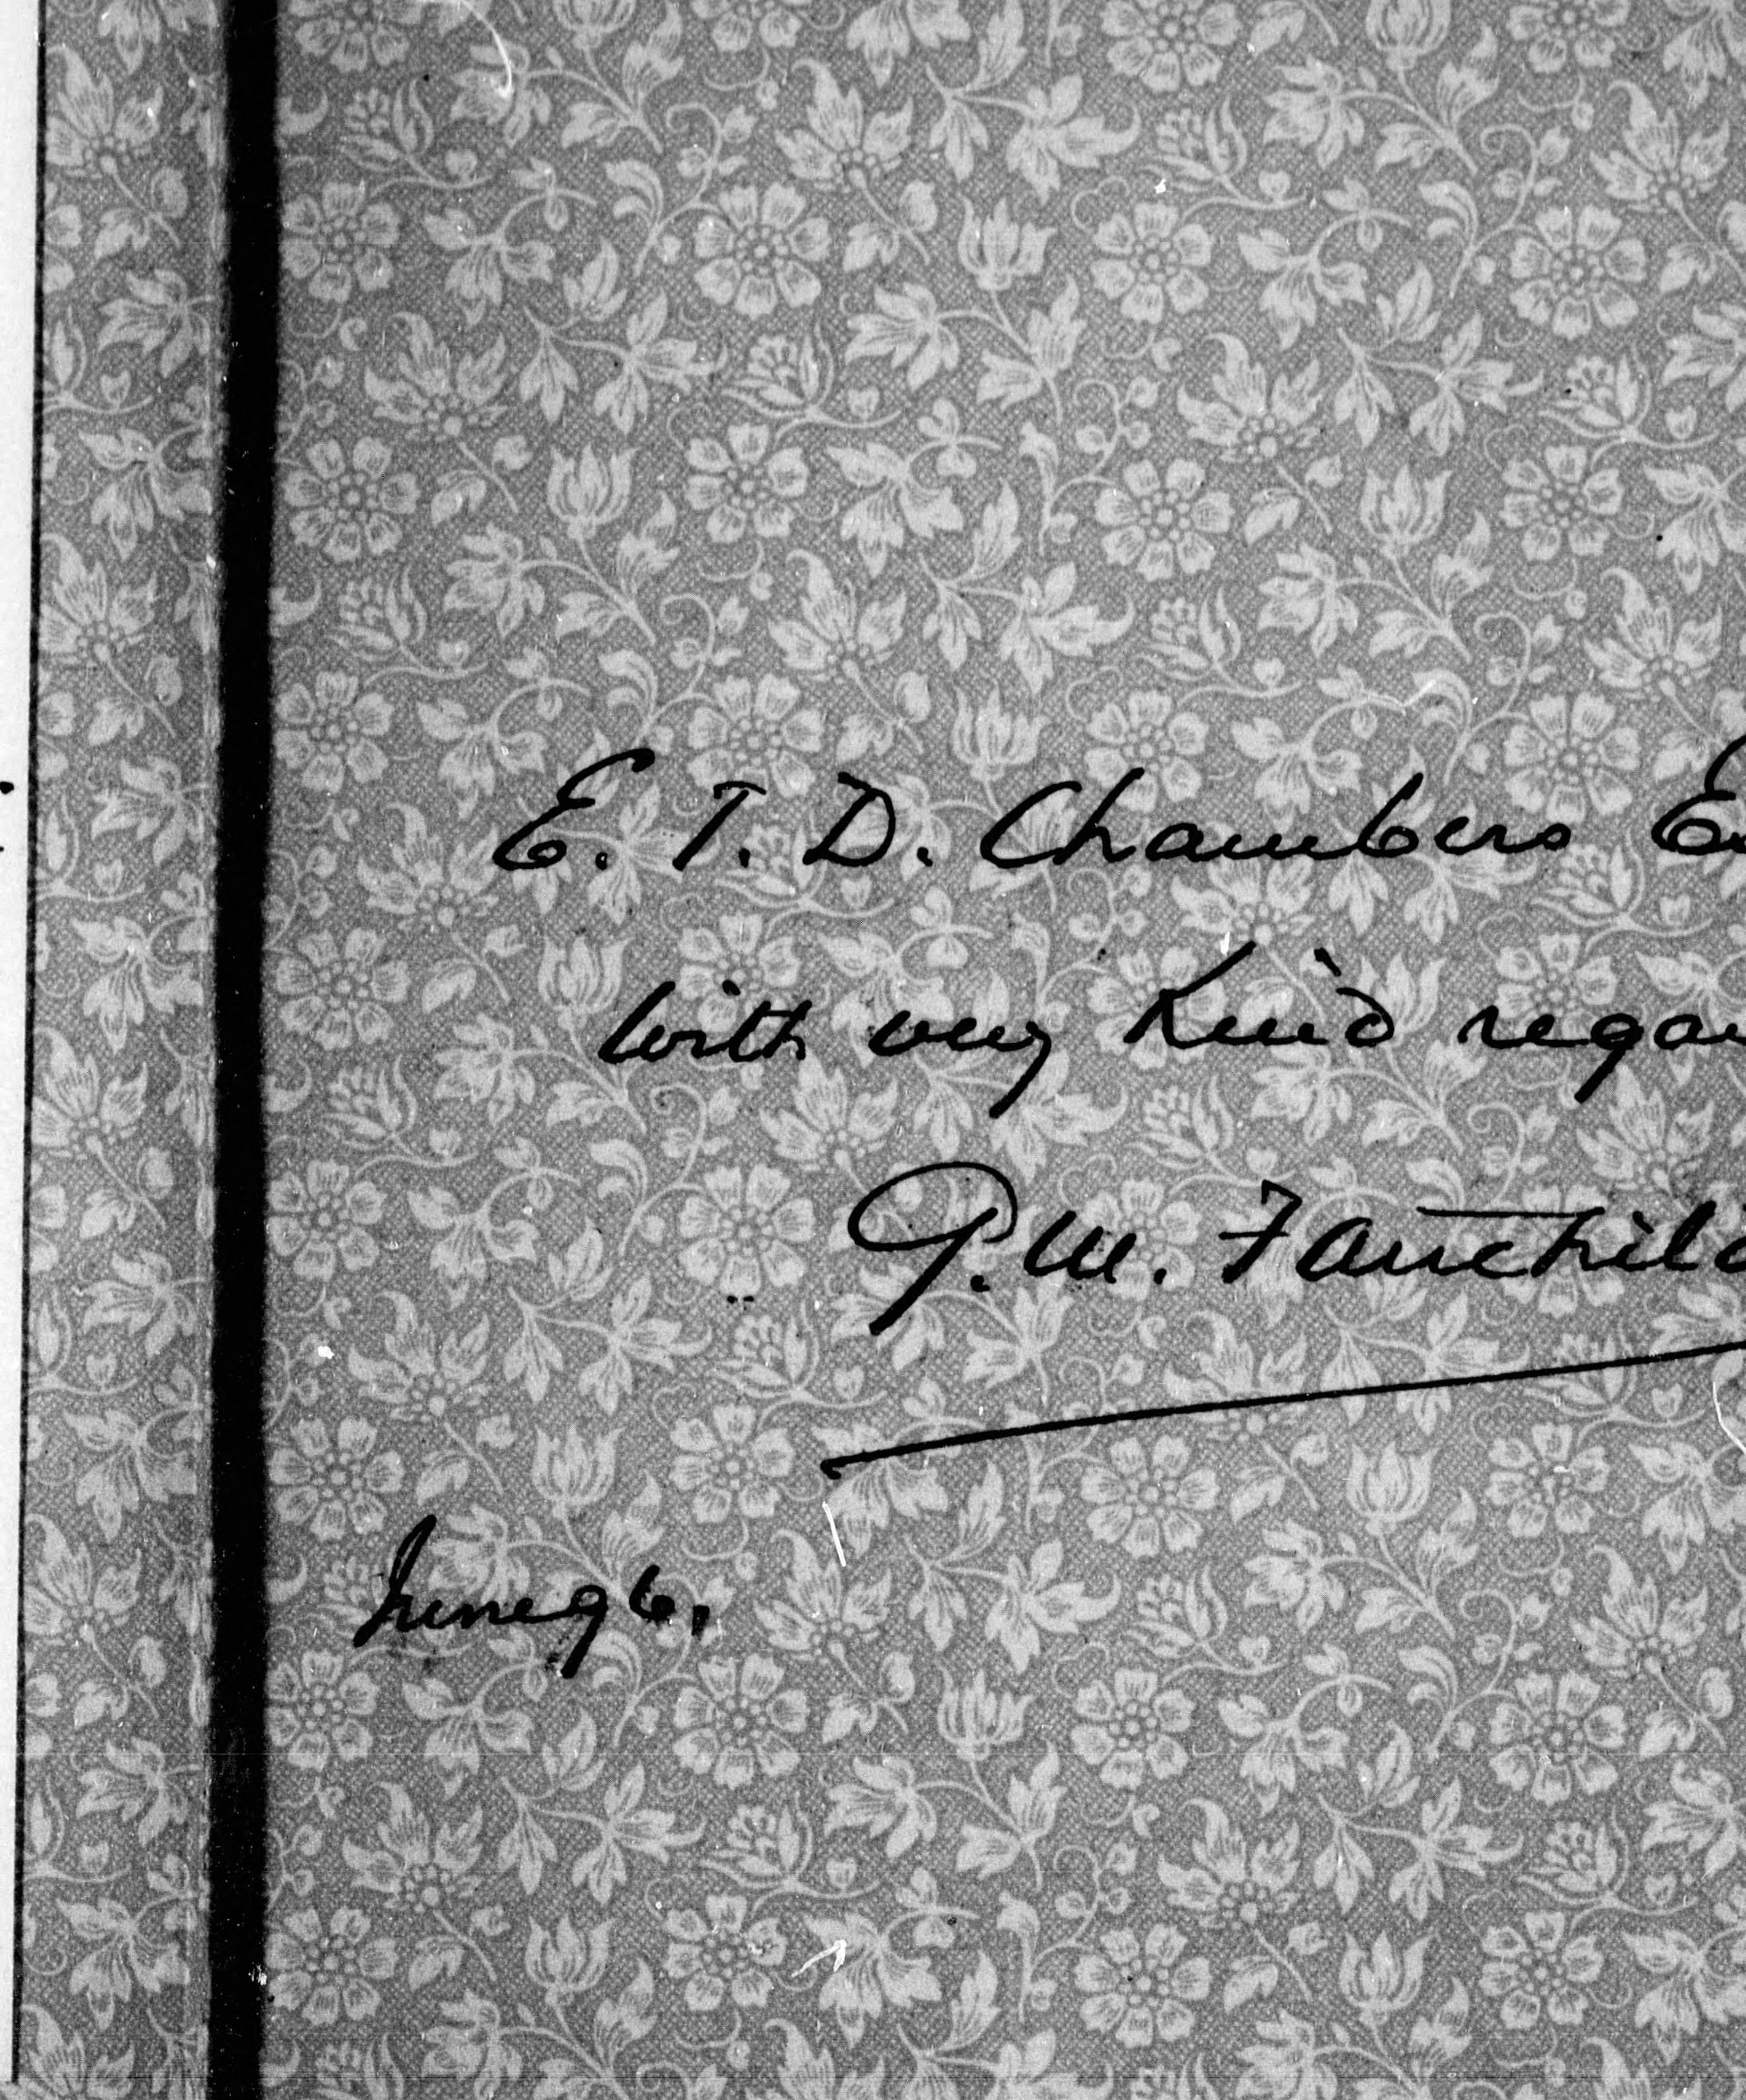 E. T. D. Chambers E
with very kind regar
G. M. Fairchild
June 96.